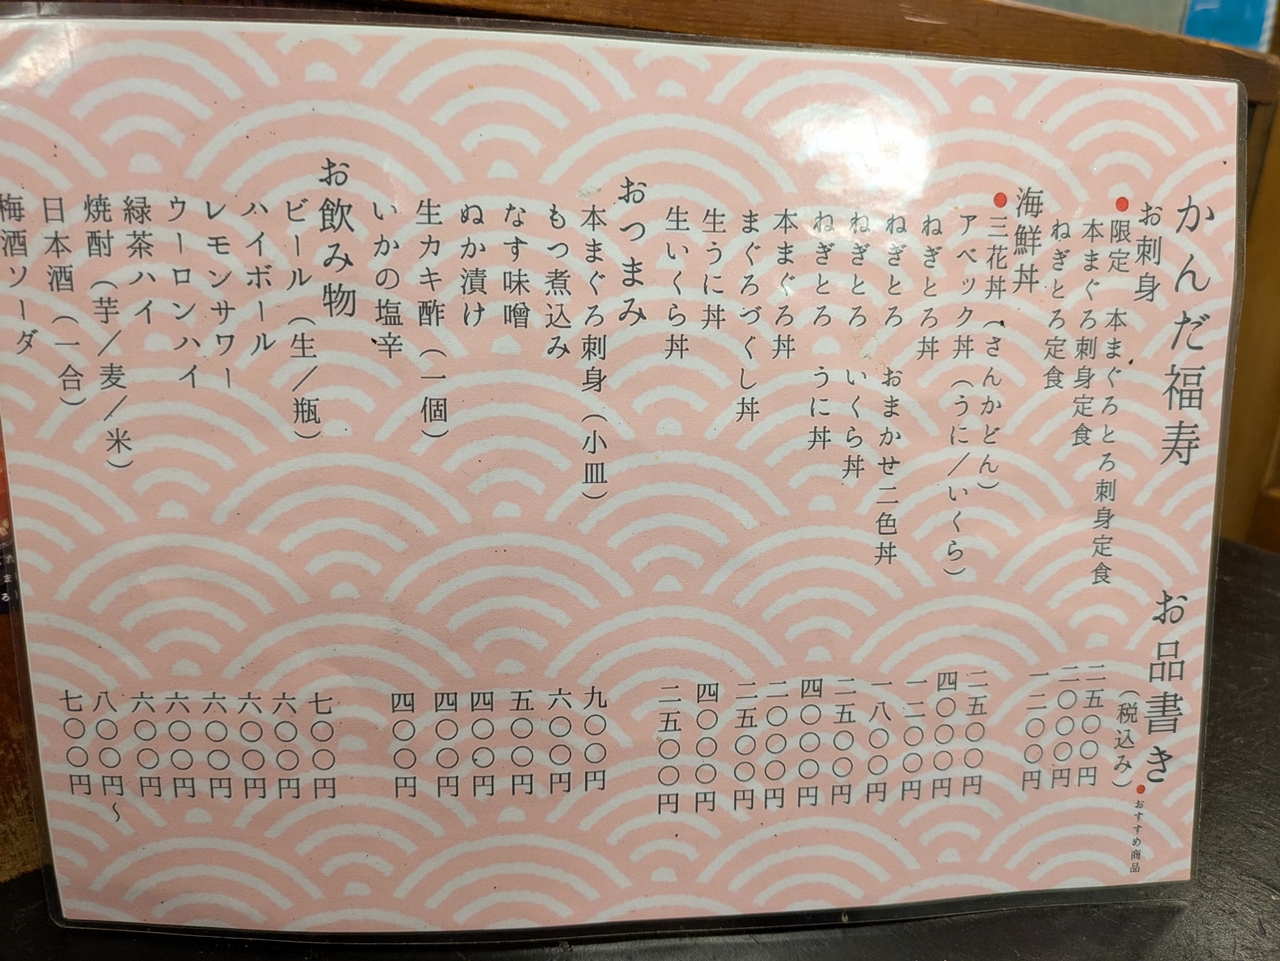 かんだ福寿 お品書き(税込み)●おすすめ商品
お刺身
●限定 本まぐろとろ刺身定食 二五〇〇円
本まぐろ刺身定食 二〇〇〇円
ねぎとろ定食 一二〇〇円
海鮮丼
●三花丼(さんかどん) 二五〇〇円
アベック丼(うに/いくら) 四〇〇〇円
ねぎとろ丼 一二〇〇円
ねぎとろ おまかせ二色丼 一八〇〇円
ねぎとろ いくら丼 二五〇〇円
ねぎとろ うに丼 四〇〇〇円
本まぐろ丼 二〇〇〇円
まぐろづくし丼 二五〇〇円
生うに丼 四〇〇〇円
生いくら丼 二五〇〇円
おつまみ
本まぐろ刺身(小皿) 九〇〇円
もつ煮込み 六〇〇円
なす味噌 五〇〇円
ぬか漬け 四〇〇円
生カキ酢(一個) 四〇〇円
いかの塩辛 四〇〇円
お飲み物
ビール(生/瓶) 七〇〇円
ハイボール 六〇〇円
レモンサワー 六〇〇円
ウーロンハイ 六〇〇円
緑茶ハイ 六〇〇円
焼酎(芋/麦/米) 六〇〇円
日本酒(一合) 八〇〇円〜
梅酒ソーダ 七〇〇円